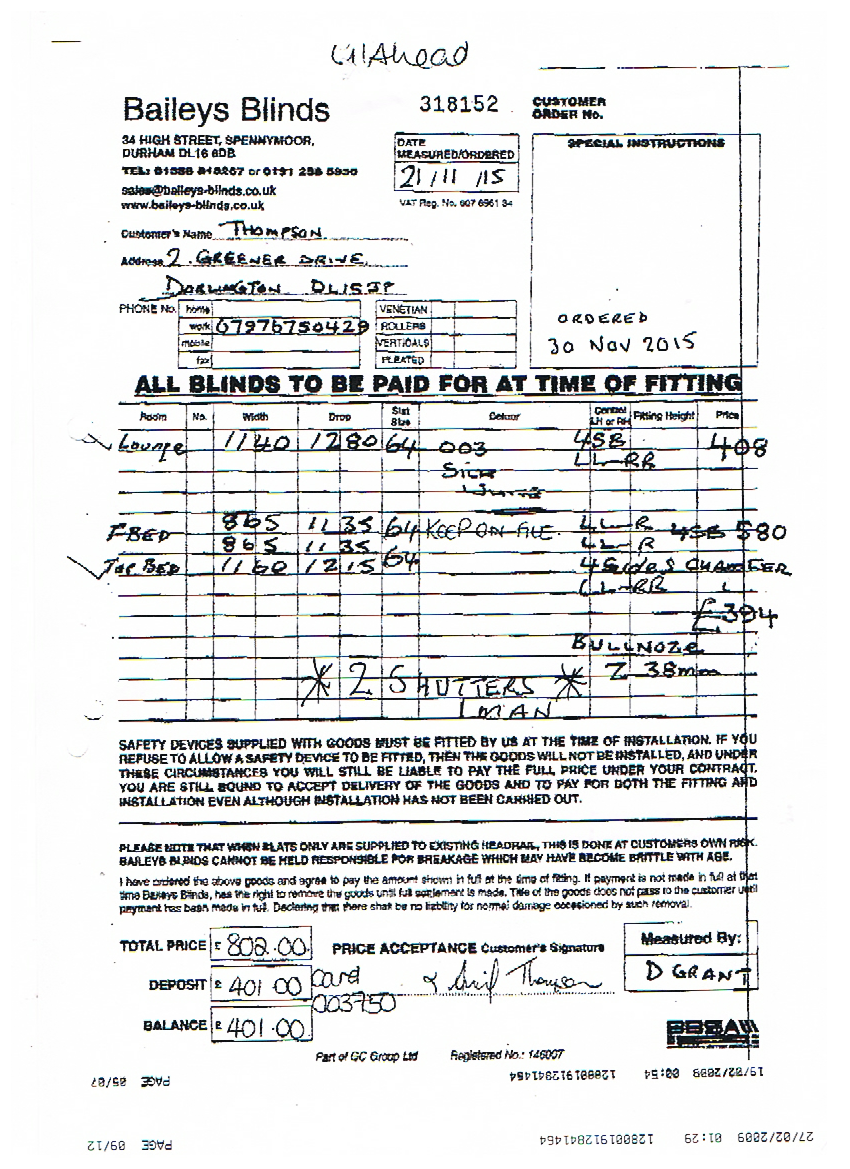 Baileys Blinds
318152
CUSTOMER
ORDER No.
34 HIGH STREET, SPENNYMOOR,
DURHAM DL16 6DB
sales@baileys-blinds.co.uk
www.baileys-blinds.co.uk
DATE
MEASURED/ORDERED
21/11/15
VAT Reg. No.
SPECIAL INSTRUCTIONS
Customer's Name THOMPSON
Address 2. GREENER DRIVE
DARLINGTON
PHONE No. home
work 07976750429
mobile
fax
VENETIAN
ROLLERS
VERTICALS
PLEATED
ORDERED
30 NOV 2015
ALL BLINDS TO BE PAID FOR AT TIME OF FITTING
Room No. Width Drop Slat Size Colour Control LH or RH Fitting Height Price
Lounge 1140 1280 64 003 4SB 408
LL-RR
865 1135 64 KEEP ON FILE LL-R 4SB 580
865 1135 LL-R
BED 1160 1215 64 4 Sides CHAMFER
LL-RR L
£394
BULLNOZE
Z 38mm
* 2 SHUTTERS *
1 MAN
SAFETY DEVICES SUPPLIED WITH GOODS MUST BE FITTED BY US AT THE TIME OF INSTALLATION. IF YOU
REFUSE TO ALLOW A SAFETY DEVICE TO BE FITTED, THEN THE GOODS WILL NOT BE INSTALLED, AND UNDER
THESE CIRCUMSTANCES YOU WILL STILL BE LIABLE TO PAY THE FULL PRICE UNDER YOUR CONTRACT.
YOU ARE STILL BOUND TO ACCEPT DELIVERY OF THE GOODS AND TO PAY FOR BOTH THE FITTING AND
INSTALLATION EVEN ALTHOUGH INSTALLATION HAS NOT BEEN CARRIED OUT.
PLEASE NOTE THAT WHEN SLATS ONLY ARE SUPPLIED TO EXISTING HEADRAIL, THIS IS DONE AT CUSTOMERS OWN RISK.
BAILEYS BLINDS CANNOT BE HELD RESPONSIBLE FOR BREAKAGE WHICH MAY HAVE BECOME BRITTLE WITH AGE.
I have ordered the above goods and agree to pay the amount shown in full at the time of fitting. If payment is not made in full at that
time Baileys Blinds, has the right to remove the goods until full settlement is made. Title of the goods does not pass to the customer until
payment has been made in full. Declaring that there shall be no liability for normal damage occasioned by such removal.
TOTAL PRICE £ 802.00
PRICE ACCEPTANCE Customer's Signature
Measured By:
D GRANT
DEPOSIT £ 401 00 Card
003750
BALANCE £ 401.00
Part of GC Group Ltd Registered No.: 146007
19/02/2009 00:54 128001912841454 PAGE 05/07
27/02/2009 01:29 128001912841454 PAGE 09/12